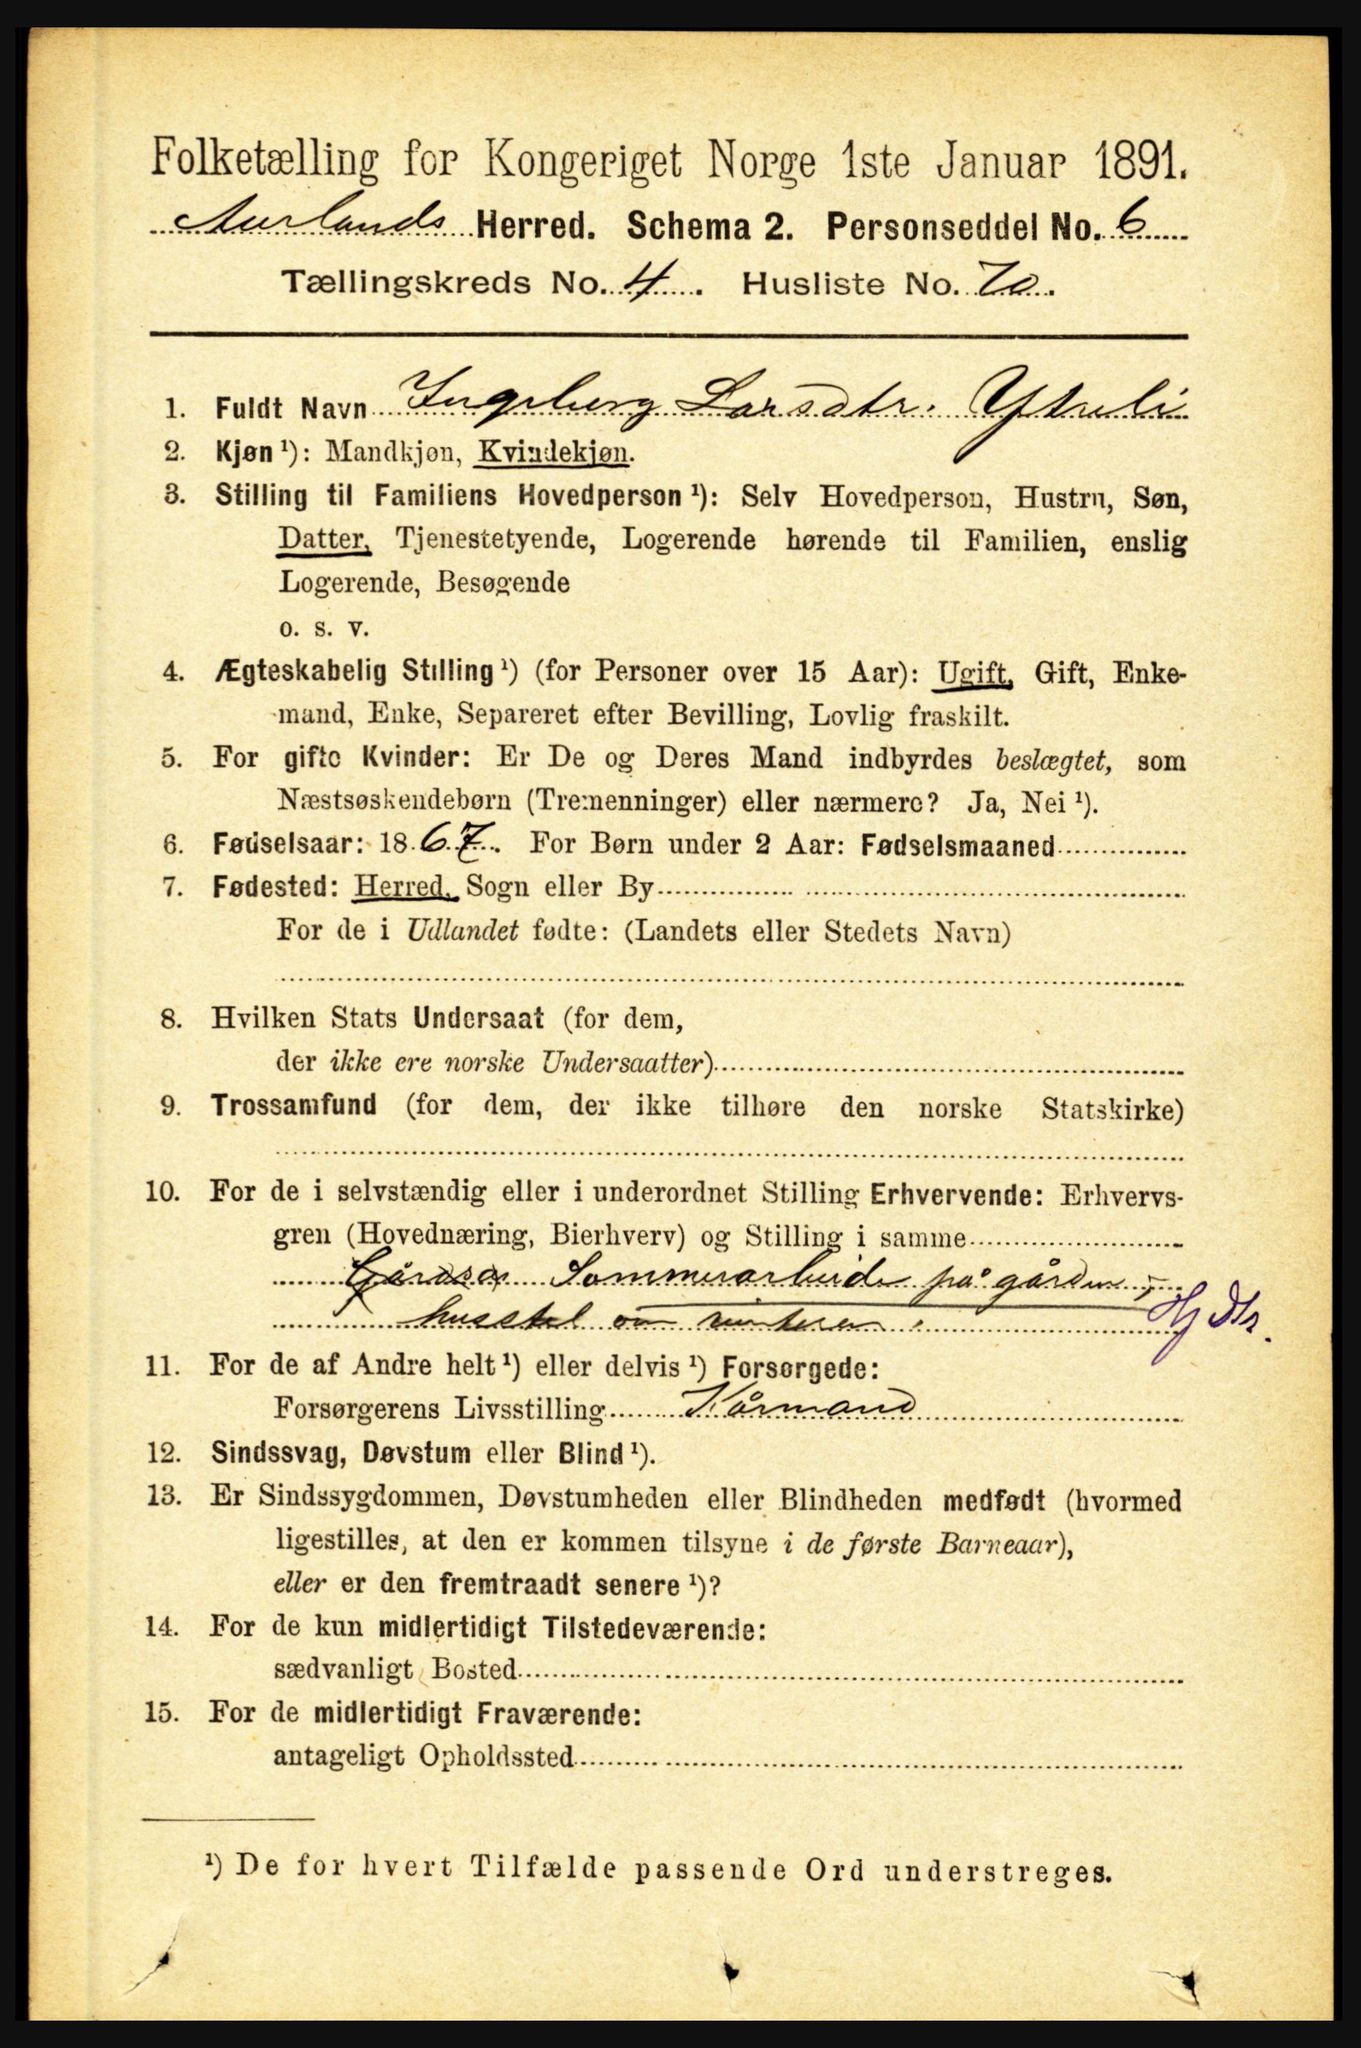 Folketælling for Kongeriget Norge 1ste Januar 1891.
Aurlands Herred. Schema 2. Personseddel No. 6
Tællingskreds No. 4. Husliste No. 70.
1. Fuldt Navn Ingeborg Larsdtr. Ytreli
2. Kjøn ¹): Mandkjøn, Kvindekjøn.
3. Stilling til Familiens Hovedperson ¹): Selv Hovedperson, Hustru, Søn,
Datter, Tjenestetyende, Logerende hørende til Familien, enslig
Logerende, Besøgende
o. s. v.
4. Ægteskabelig Stilling ¹) (for Personer over 15 Aar): Ugift, Gift, Enke-
mand, Enke, Separeret efter Bevilling, Lovlig fraskilt.
5. For gifte Kvinder: Er De og Deres Mand indbyrdes beslægtet, som
Næstsøskendebørn (Tremenninger) eller nærmere? Ja, Nei ¹).
6. Fødselsaar: 1867. For Børn under 2 Aar: Fødselsmaaned
7. Fødested: Herred, Sogn eller By
For de i Udlandet fødte: (Landets eller Stedets Navn)
8. Hvilken Stats Undersaat (for dem,
der ikke ere norske Undersaatter)
9. Trossamfund (for dem, der ikke tilhøre den norske Statskirke)
10. For de i selvstændig eller i underordnet Stilling Erhvervende: Erhvervs-
gren (Hovednæring, Bierhverv) og Stilling i samme
Sommerarbeide på gården,
husstel om vinteren. Hj Dtr.
11. For de af Andre helt ¹) eller delvis ¹) Forsørgede:
Forsørgerens Livsstilling Kårmand
12. Sindssvag, Døvstum eller Blind ¹).
13. Er Sindssygdommen, Døvstumheden eller Blindheden medfødt (hvormed
ligestilles, at den er kommen tilsyne i de første Barneaar),
eller er den fremtraadt senere ¹)?
14. For de kun midlertidigt Tilstedeværende:
sædvanligt Bosted
15. For de midlertidigt Fraværende:
antageligt Opholdssted
¹) De for hvert Tilfælde passende Ord understreges.